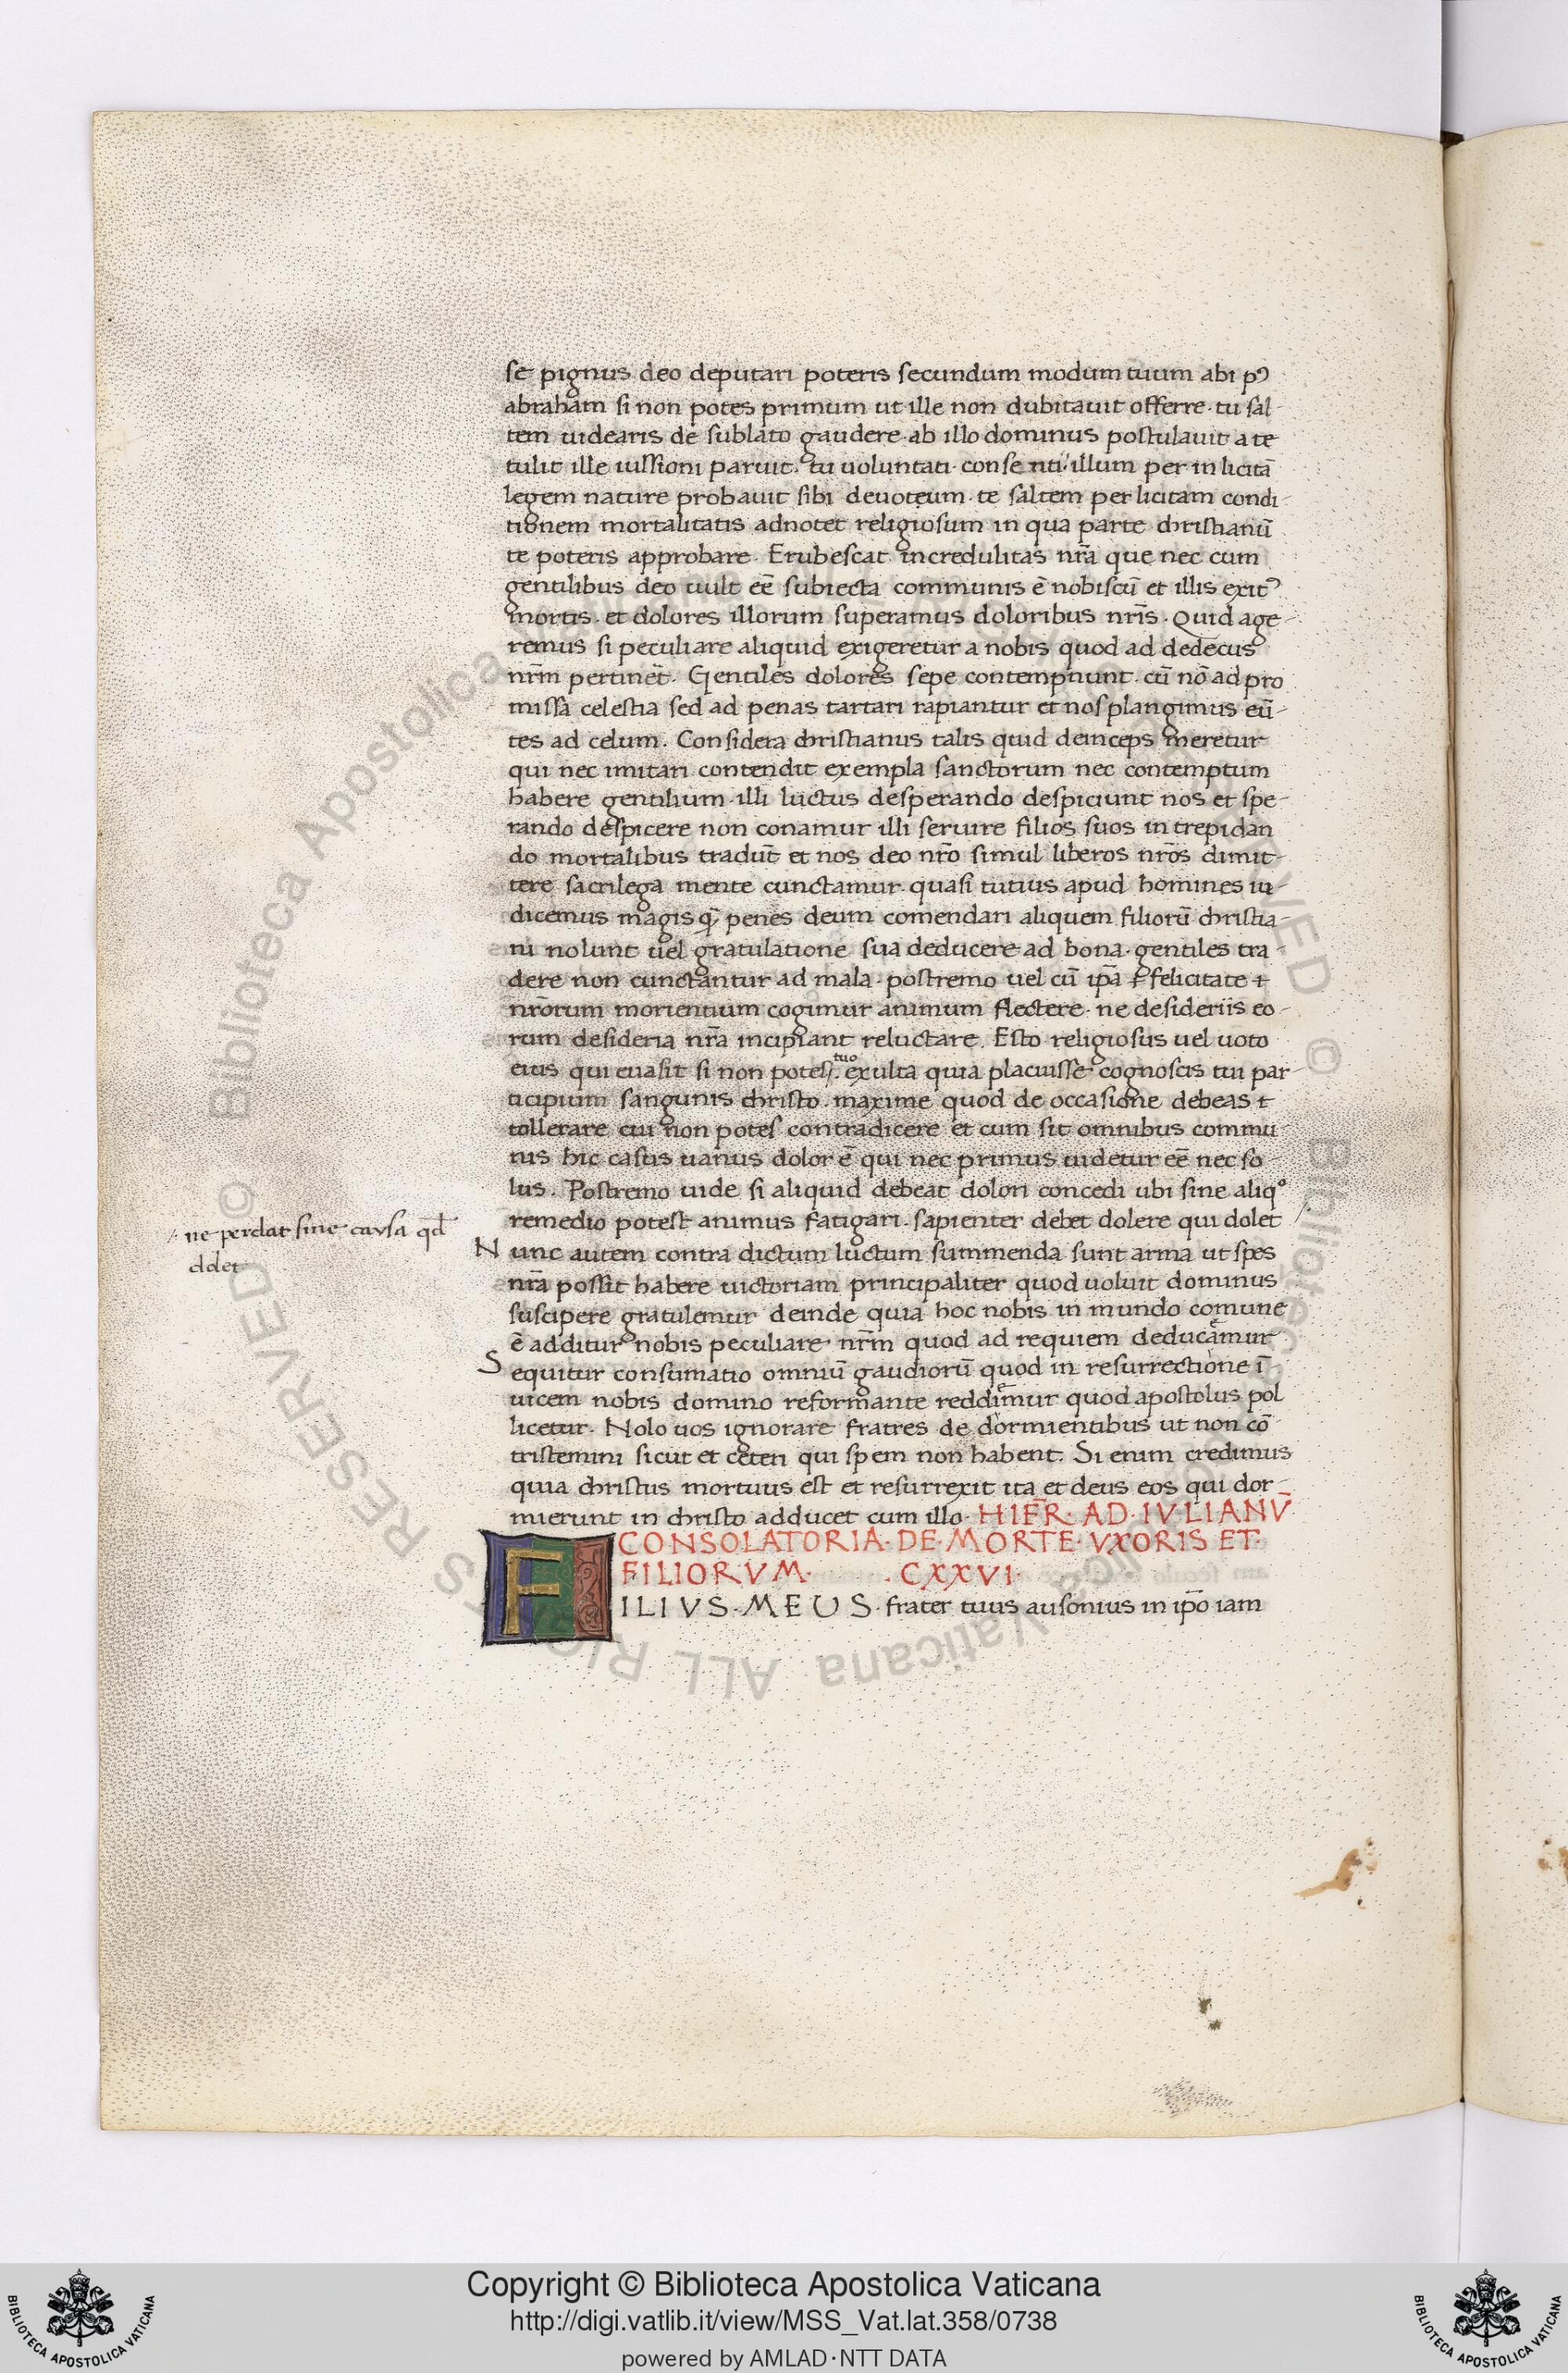 se pignus deo deputari poteris secundum modum tuum abi pꝰ
abraham si non potes primum ut ille non dubitauit offerre· tu sal-
tem uidearis de sublato gaudere· ab illo dominus postulauit a te
tulit ille iussioni paruit· tu uoluntati· consenti illum per inlicitā
legem nature probauit sibi deuoteum· te saltem per licitam condi-
tionem mortalitatis adnotet religiosum in qua parte christianū
te poteris approbare· Erubescat incredulitas nr̄a que nec cum
gentilibus deo uult eē subiecta communis ē nobiscū et illis exitꝰ
mortis· et dolores illorum superamus doloribus nr̄is· Quid age-
remus si peculiare aliquid exigeretur a nobis quod ad dedecus
nr̄m pertinet̄· Gentiles dolores sepe contempnunt· cū nō ad pro
missa celestia sed ad penas tartari rapiantur et nos plangimus eū-
tes ad celum. Considera christianus talis quid deinceps meretur
qui nec imitari contendit exempla sanctorum nec contemptum
habere gentilium· illi luctus desperando despiciunt nos et spe-
rando despicere non conamur illi seruire filios suos intrepidan
do mortalibus tradūt et nos deo nr̄o simul liberos nr̄os dimit-
tere sacrilega mente cunctamur· quasi tutius apud homines iu-
dicemus magis q̃ penes deum comendari aliquem filiorū christia-
ni nolunt uel gratulatione sua deducere ad bona· gentiles tra-
dere non cunctantur ad mala· postremo uel cū ip̄a felicitate
nr̄orum morientium cogimur animum flectere· ne desideriis eo-
rum desideria nr̄a incipiant reluctare. Esto religiosus uel uoto
tuo
eius qui euasit si non potes· exulta quia placuisse cognoscis tui par-
ticipium sangunis christo· maxime quod de occasione debeas
tollerare cui non potes contradicere et cum sit omnibus commu
nis hic castis uanus dolor ē qui nec primus uidetur eē nec so-
lus. Postremo uide si aliquid debeat dolori concedi ubi sine aliqº
remedio potest animus fatigari· sapienter debet dolere qui dolet /·
/· ne perdat sine causa qd̄
dolet
Nunc autem contra dictum luctum summenda sunt arma ut spes
nr̄a possit habere uictoriam principaliter quod uoluit dominus
suscipere gratulemur deinde quia hoc nobis in mundo comune
ē additur nobis peculiare nr̄m quod ad requiem deducamur
Sequitur consumatio omniū gaudiorū quod in resurrectione ī
uicem nobis domino reformante reddimur quod apostolus pol
licetur· Nolo uos ignorare fratres de dormientibus ut non cō
tristemini sicut et ceteri qui spem non habent. Si enim credimus
quia christus mortuus est et resurrexit ita et deus eos qui dor-
mierunt in christo adducet cum illo· HIER̄· AD· IVLIANV̄
CONSOLATORIA· DE· MORTE· VXORIS ET·
FILIORVM· · CXXVI·
FILIVS· MEUS· frater tuus ausonius in ip̄o iam
Copyright © Biblioteca Apostolica Vaticana
http://digi.vatlib.it/view/MSS_Vat.lat.358/0738
powered by AMLAD·NTT DATA
BIBLIOTECA APOSTOLICA VATICANA
BIBLIOTECA APOSTOLICA VATICANA